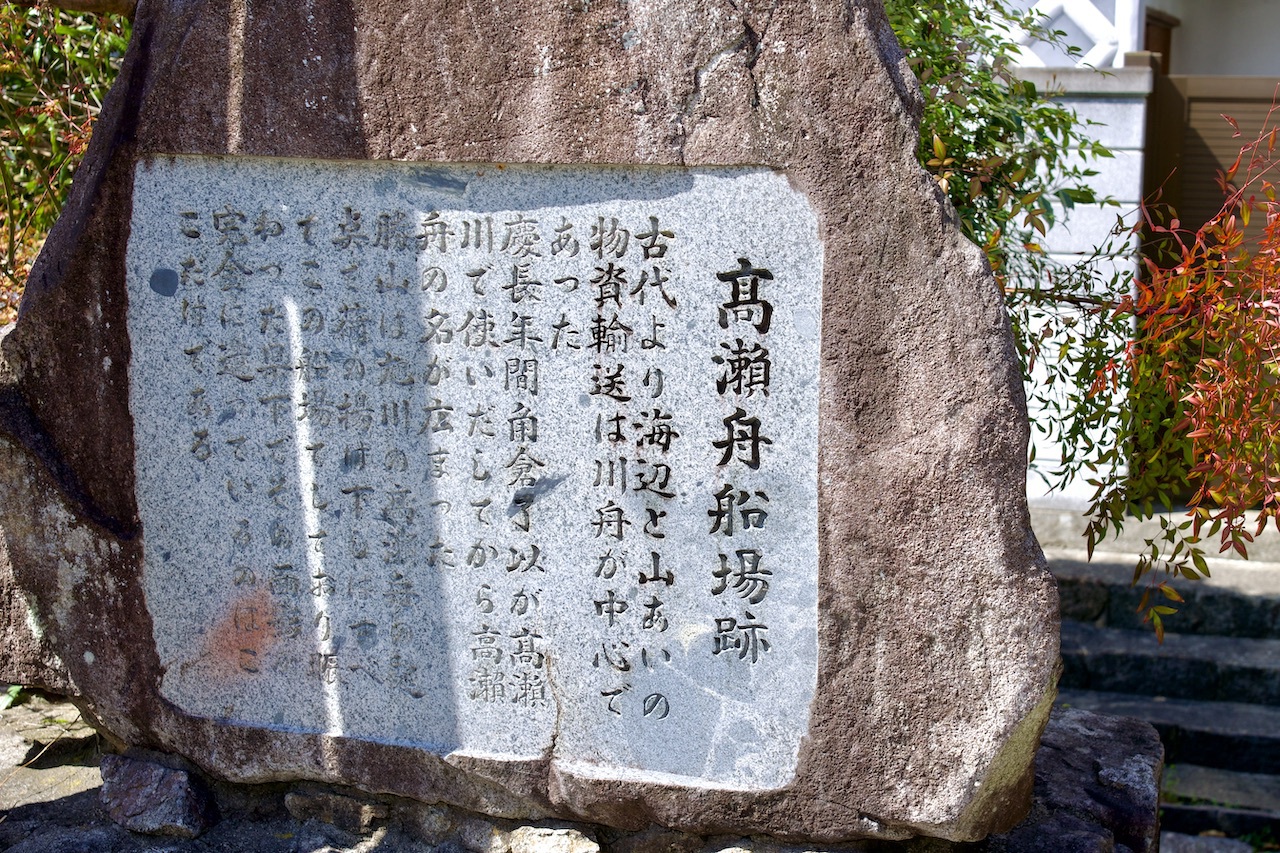 髙瀬舟船場跡
古代より海辺と山あいの
物資輸送は川舟が中心で
あった
慶長年間角倉了以が髙瀬
川で使いだしてから高瀬
舟の名が広まった
勝山は旭川の高瀬舟の
で
てこの船場てしており賑
わった県下でその
完全に造っているのはこ
こだけである